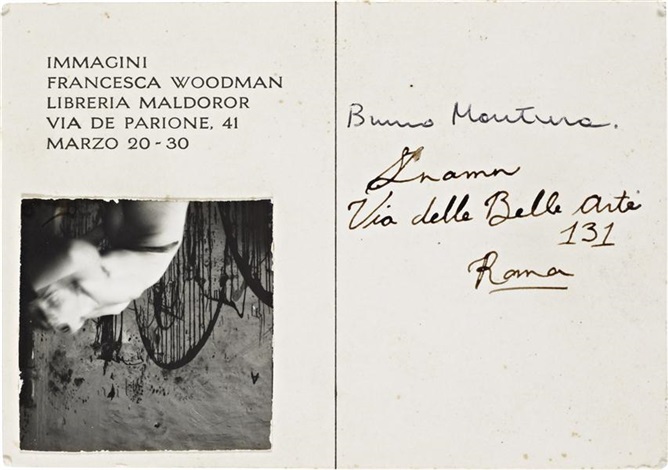 IMMAGINI
FRANCESCA WOODMAN
LIBRERIA MALDOROR
VIA DE PARIONE, 41
MARZO 20 - 30
Bruno Mantura.
Via delle Belle Arte
131
Roma